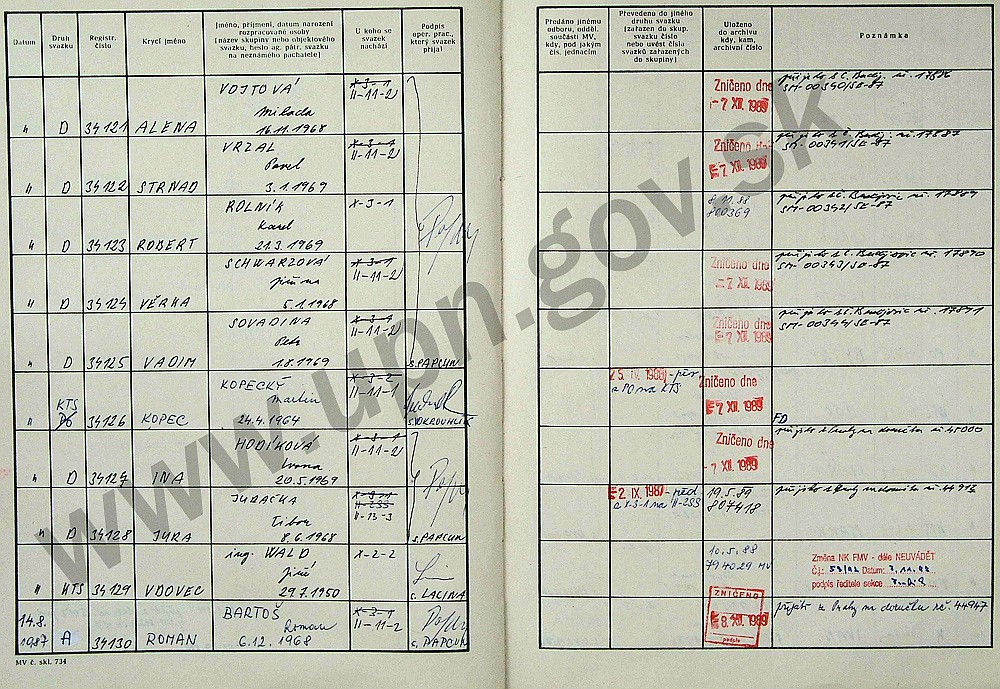 Datum
Druh svazku
Registr. číslo
Krycí jméno
Jméno, příjmení, datum narození rozpracované osoby (název skupiny nebo objektového svazku, heslo ag. pátr. svazku na neznámého pachatele)
U koho se svazek nachází
Podpis oper. prac., který svazek přijal
Předáno jinému odboru, odděl. součásti MV, kdy, pod jakým čís. jednacím
Převedeno do jiného druhu svazku (zařazen do skup. svazku číslo nebo uvést čísla svazků zařazených do skupiny)
Uloženo do archivu kdy, kam, archivní číslo
Poznámka
VOJTOVÁ
Milada
" D 34121 ALENA 16.11.1968 X-3-1 II-11-2
Zničeno dne
-7 XII. 1989
SM-00340/SE-87
VRZAL
Pavel
" D 34122 STRNAD 3.1.1969 X-3-1 II-11-2
Zničeno dne
7 XII. 1989
SM-00341/SE-87
ROLNÍK
Karel
" D 34123 ROBERT 21.3.1969 X-3-1
8.11.88
800369
SM-00342/SE-87
SCHWARZOVÁ
Jiřina
" D 34124 VĚRKA 5.1.1968 X-3-1 II-11-2
Zničeno dne
-7 XII. 1989
SM-00343/SE-87
SOVADINA
Petr
" D 34125 VADIM 1.8.1969 X-3-1 II-11-2 s. PAPCUN
Zničeno dne
7 XII. 1989
SM-00344/SE-87
KOPECKÝ
Martin
" KTS 34126 KOPEC 24.4.1964 X-3-2 II-11-1 s. OKROUHLÍK
Zničeno dne
7 XII. 1989
FD
HODÍKOVÁ
Ivana
" D 34127 INA 20.5.1969 X-3-1 II-11-2
Zničeno dne
-7 XII. 1989
JURAČKA
Tibor
" D 34128 JURA 8.6.1968 X-3-1 II-2SS II-13-3 s. PAPCUN
2 IX. 1987
19.5.89
807418
ing. WALD
Jiří
" KTS 34129 VDOVEC 29.7.1950 X-2-2 s. LACINA
10.5.88
794029 MV
Změna NK FMV - dále NEUVÁDĚT
Č.j.: Datum:
podpis ředitele sekce
BARTOŠ
Roman
14.8. 1987 A 34130 ROMAN 6.12.1968 X-3-1 II-11-2 s. PAPCUN
ZNIČENO
8. XII. 1989
podpis
přijato z Prahy na doručku rč. 44947
MV č. skl. 734
www.upn.gov.sk